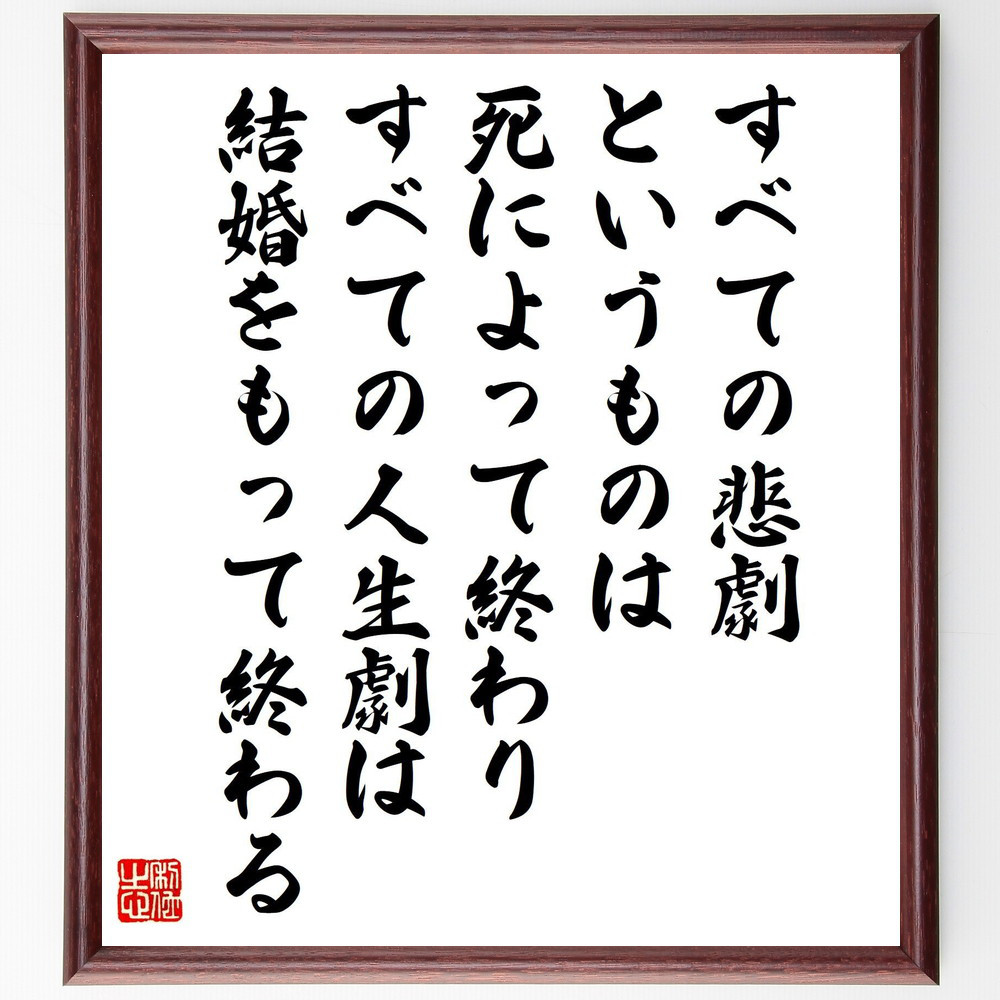 すべての悲劇
というものは
死によって終わり
すべての人生劇は
結婚をもって終わる